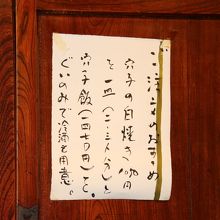 ご注文のおすすめ
穴子の白焼き
を一皿(二、三人分)と
穴子飯(一四七〇円)と。
ぐいのみで冷酒を用意。